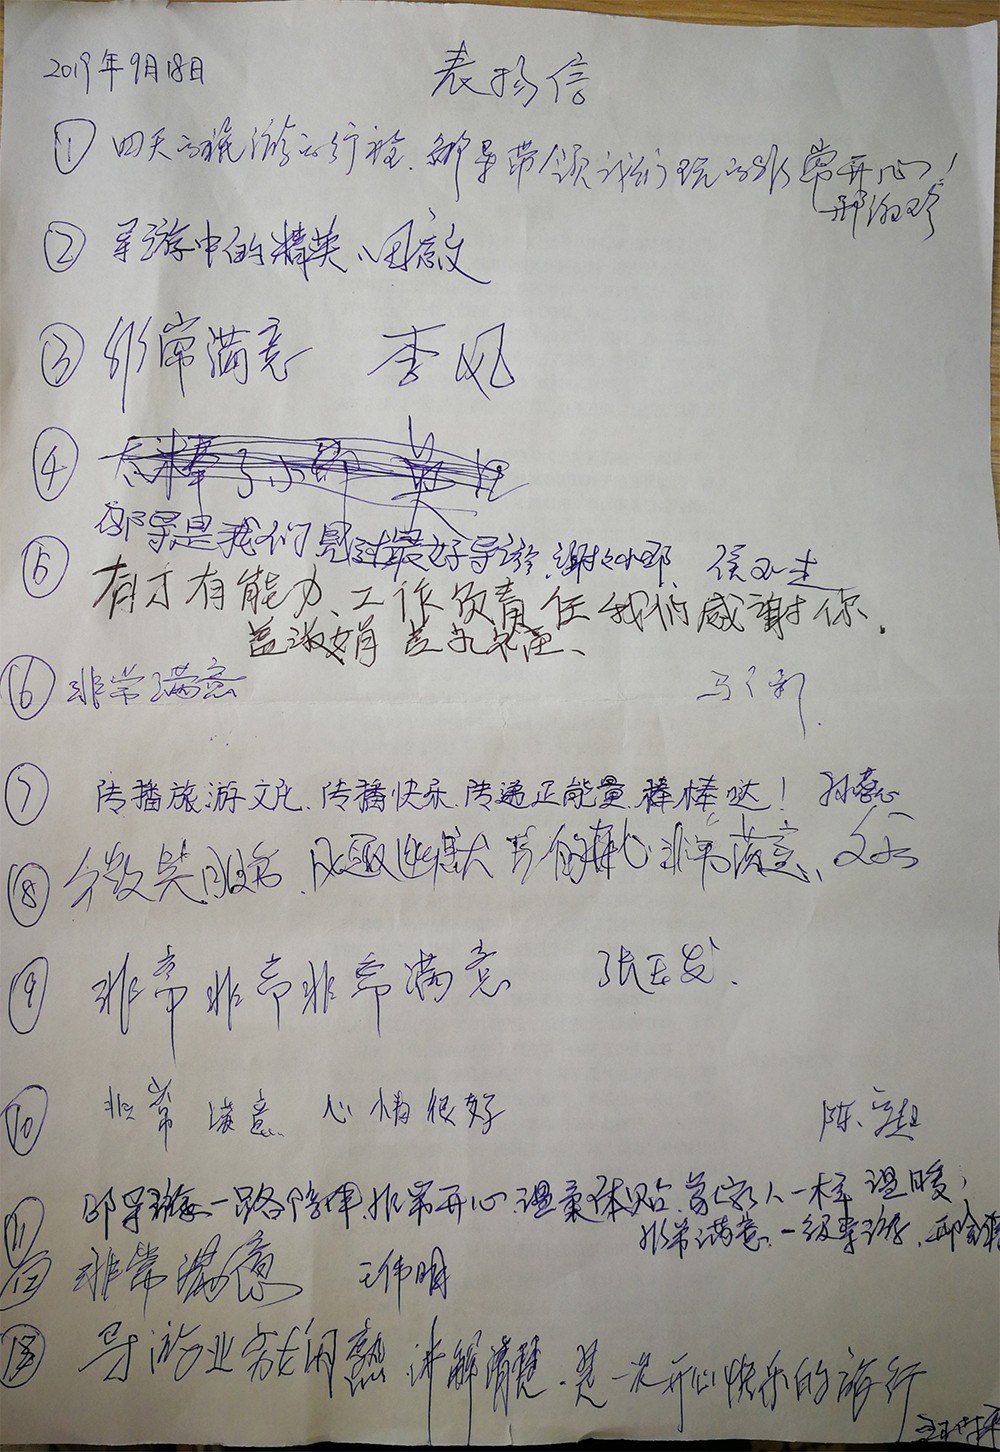 2019年9月18日
表扬信
① 四天的旅游行程,邵导带领我们玩的非常开心!
② 导游中的精英、
③ 非常满意 李风
④ 太棒了小邵
邵导是我们见过最好导游,谢谢小邵、
⑤ 有才有能力、工作负责任我们感谢你.
⑥ 非常满意
⑦ 传播旅游文化、传播快乐、传递正能量、棒棒哒!
⑧ 微笑服务、风趣幽默 非常满意、
⑨ 非常非常非常满意 张玉发、
⑩ 非常满意 心情很好 陈
⑪ 邵导游一路陪伴,非常开心、温柔体贴、像家人一样温暖,
非常满意、一级导游、
⑫ 非常满意 王伟明
⑬ 导游业务娴熟 讲解清楚、是一次开心快乐的旅行